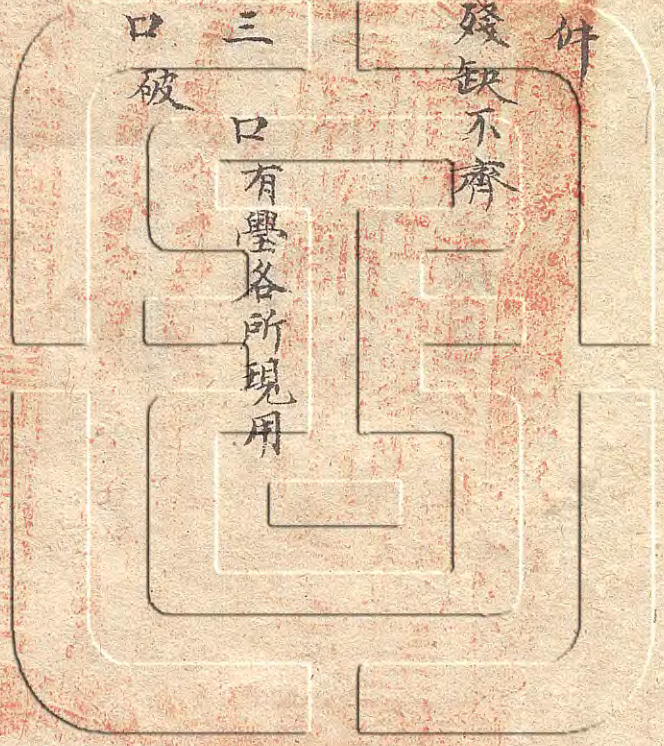 件
殘缺不齊
三　口有璺各所現用
口破